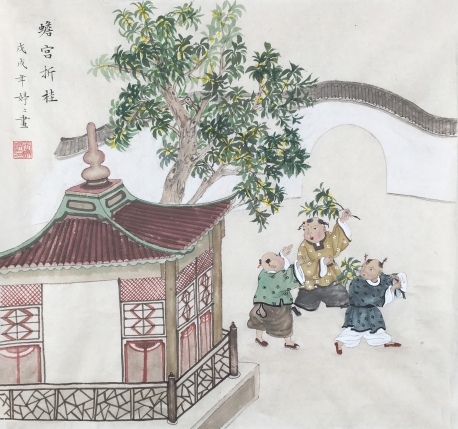 蟾宫折桂
戊戌年婷婷畫